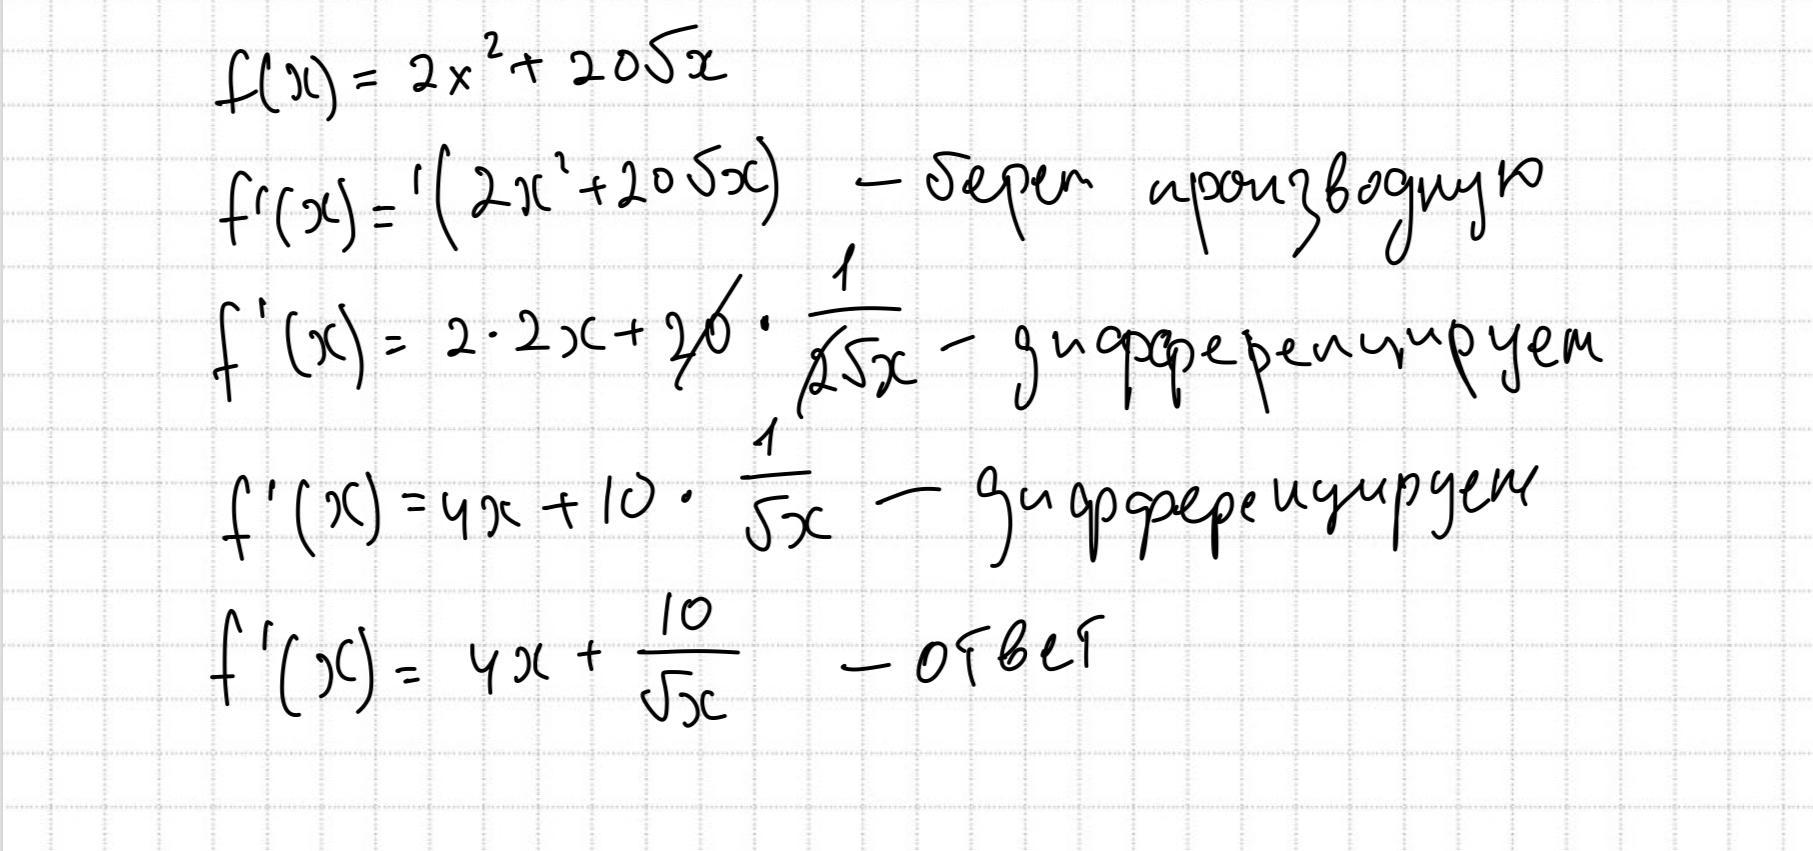 f(x) = 2x² + 20√x
f'(x) = '(2x² + 20√x) – берем производную
f'(x) = 2·2x + 20 · 1/(2√x) – дифференцируем
f'(x) = 4x + 10 · 1/√x – дифференцируем
f'(x) = 4x + 10/√x – ответ